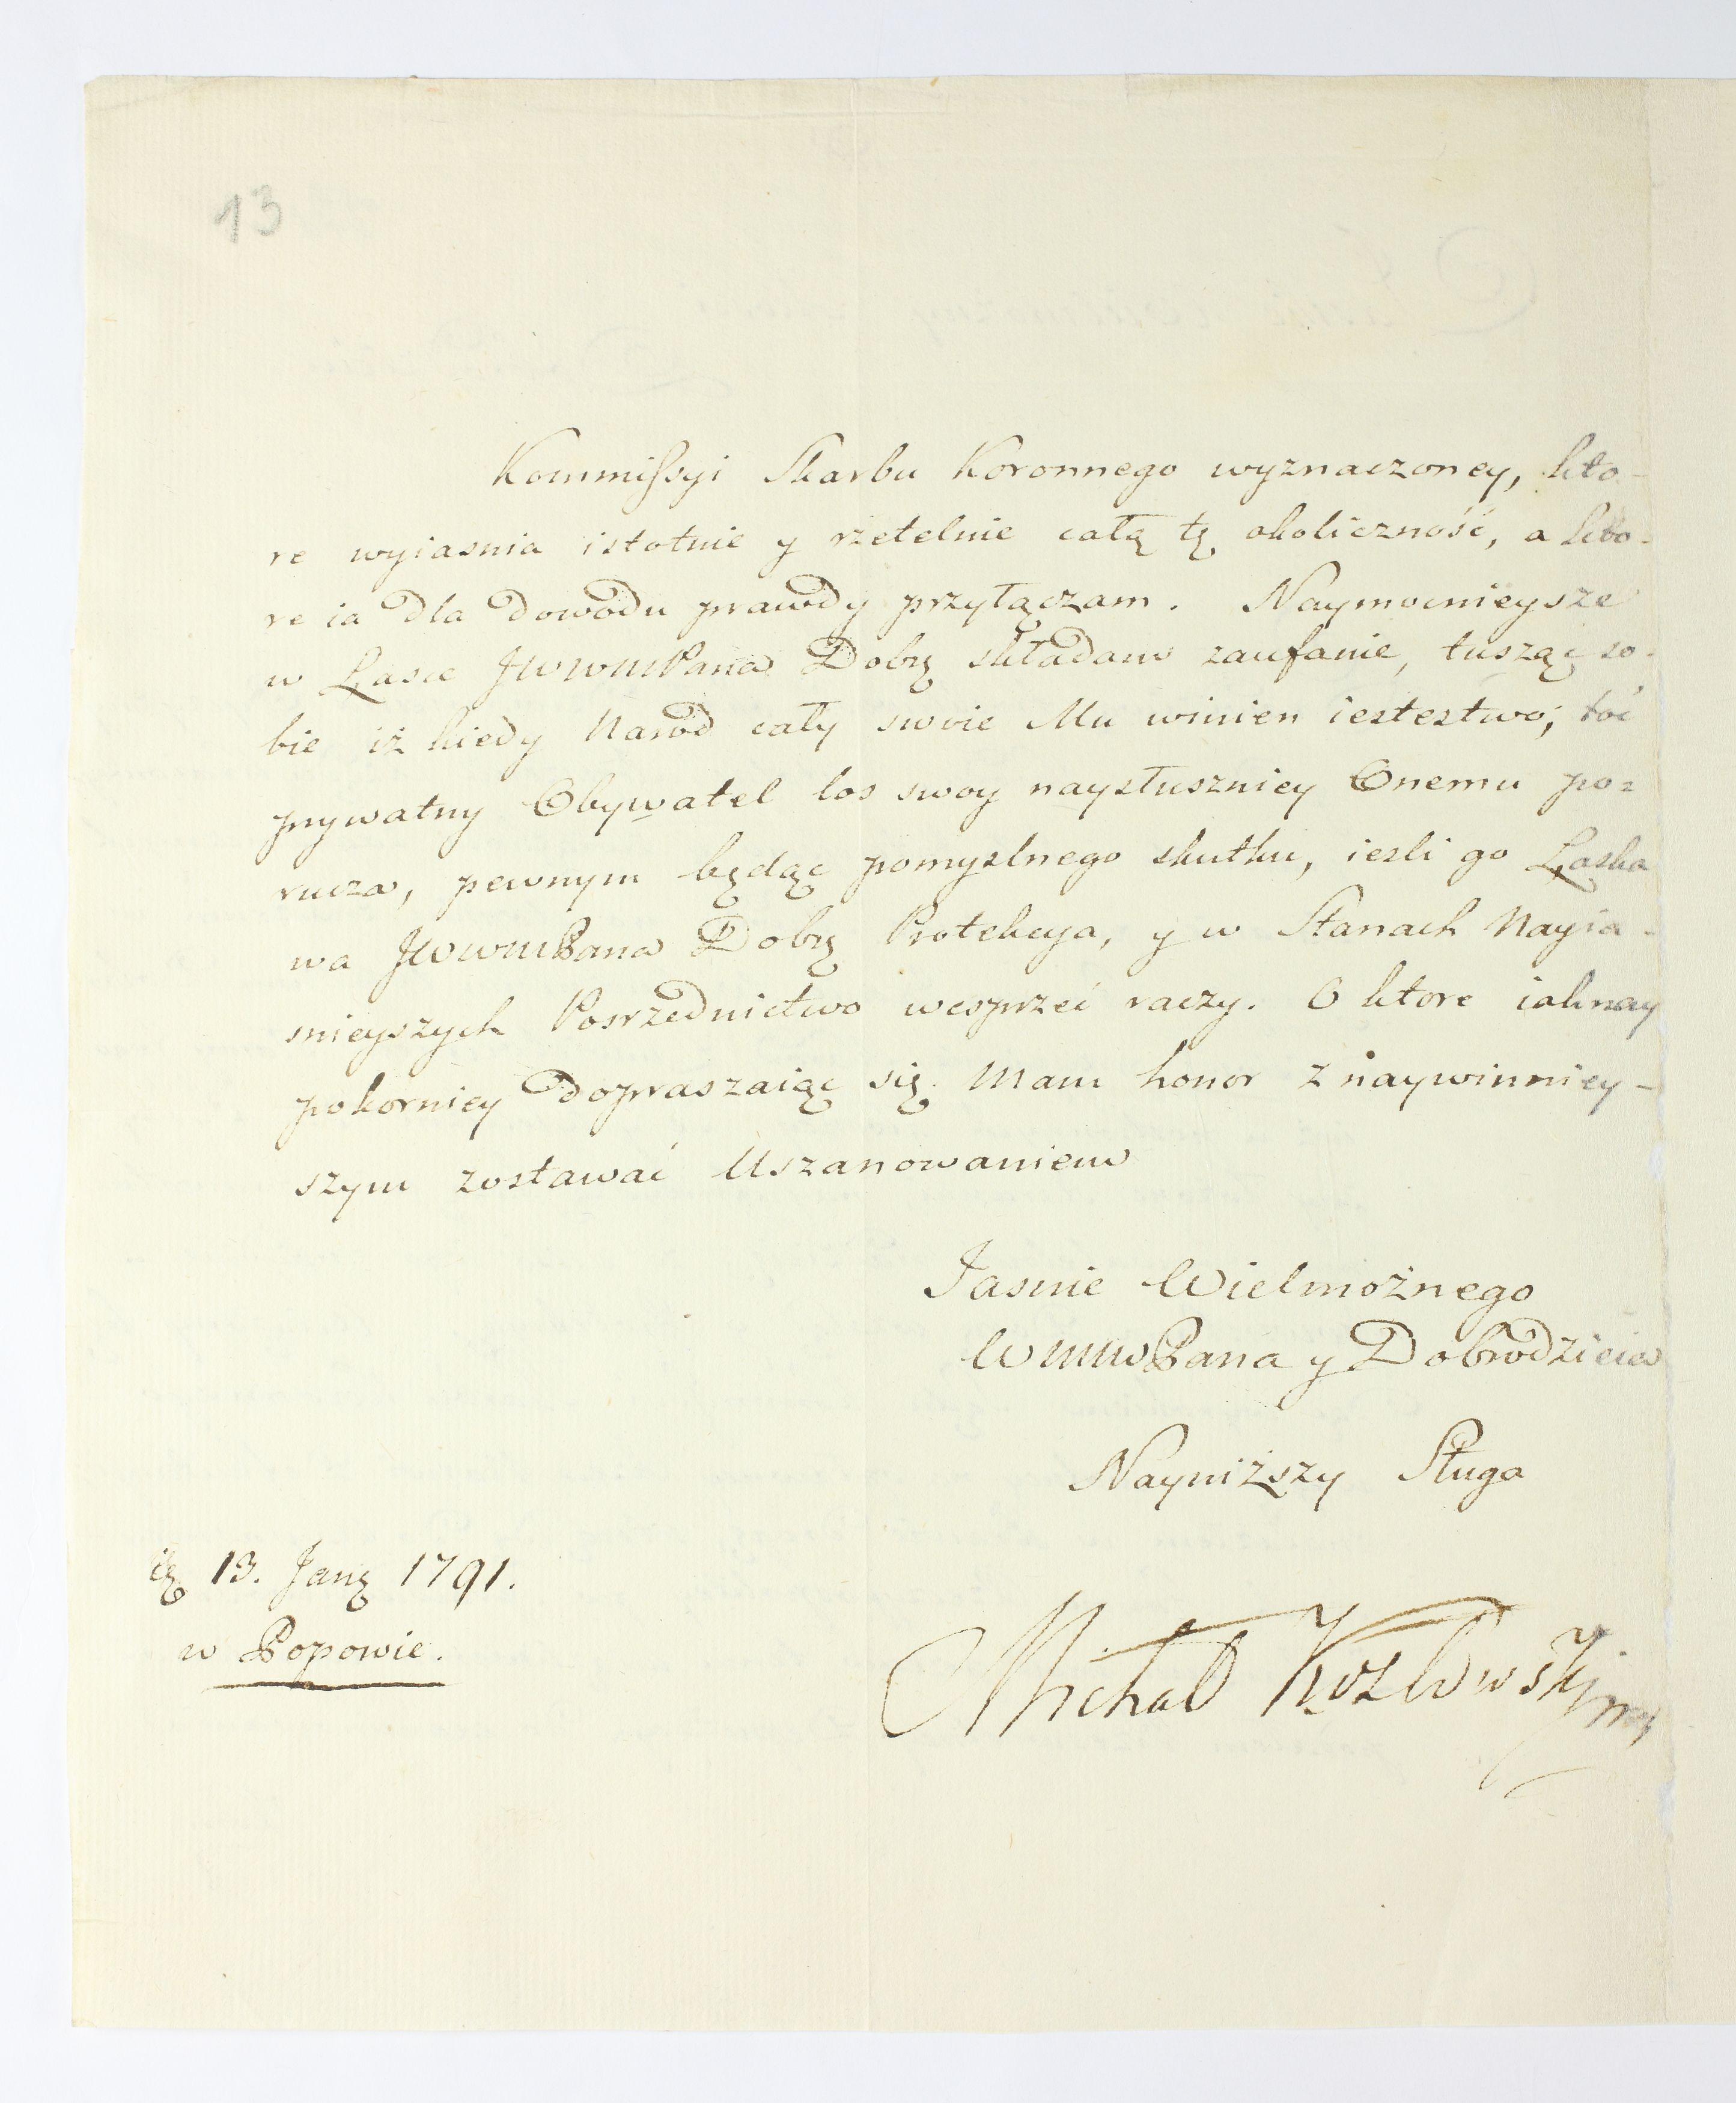 13
Kommissyi Skarbu Koronnego wyznaczoney, kto-
re wyiasnia istotnie y rzetelnie całą tę okoliczność, a kto-
re ia dla dowodu prawdy przyłączam. Naymocnieysze
w Łasce JWWMPana Dobrę składam zaufanie, tusząc so-
bie iż kiedy Naród cały swoie Mu winien iestestwo, toć
prywatny Obywatel los swoy naysłuszniey Onemu po=
rucza, pewnym będąc pomyslnego skutku, iesli go Łaska
wa JWWMPana Dobrę Protekcya, y w Stanach Nayia-
snieyszych Posrzednictwo wesprzeć raczy. O ktore iaknay
pokorniey dopraszaiąc się. Mam honor z naywinniey-
szym zostawać Uszanowaniem
Jasnie Wielmożnego
WMWPana y Dobrodzieia
Nayniższy Sługa
13. Janę 1791.
w Popowie.
Michał Kozłowski mp